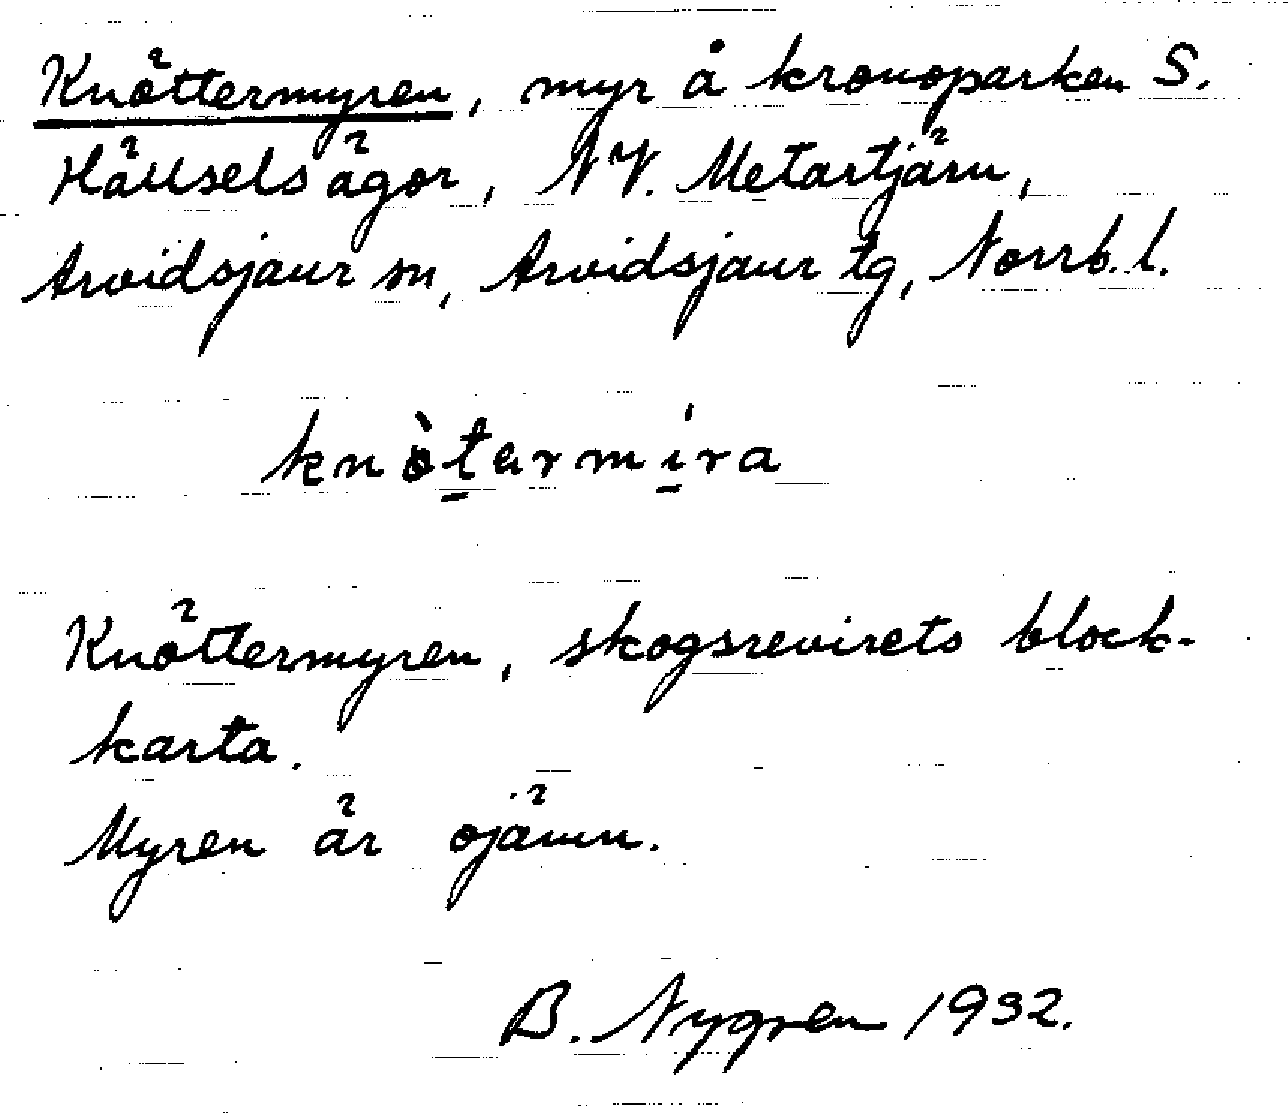 Knöttermyren, myr å kronoparken S.
Hällsels ägor, NV. Metartjärn,
Arvidsjaur sn, Arvidsjaur tg, Norrb. l.
knòtarmíra
Knöttermyren, skogsrevirets block-
karta.
Myren är ojämn.
B. Nygren 1932.